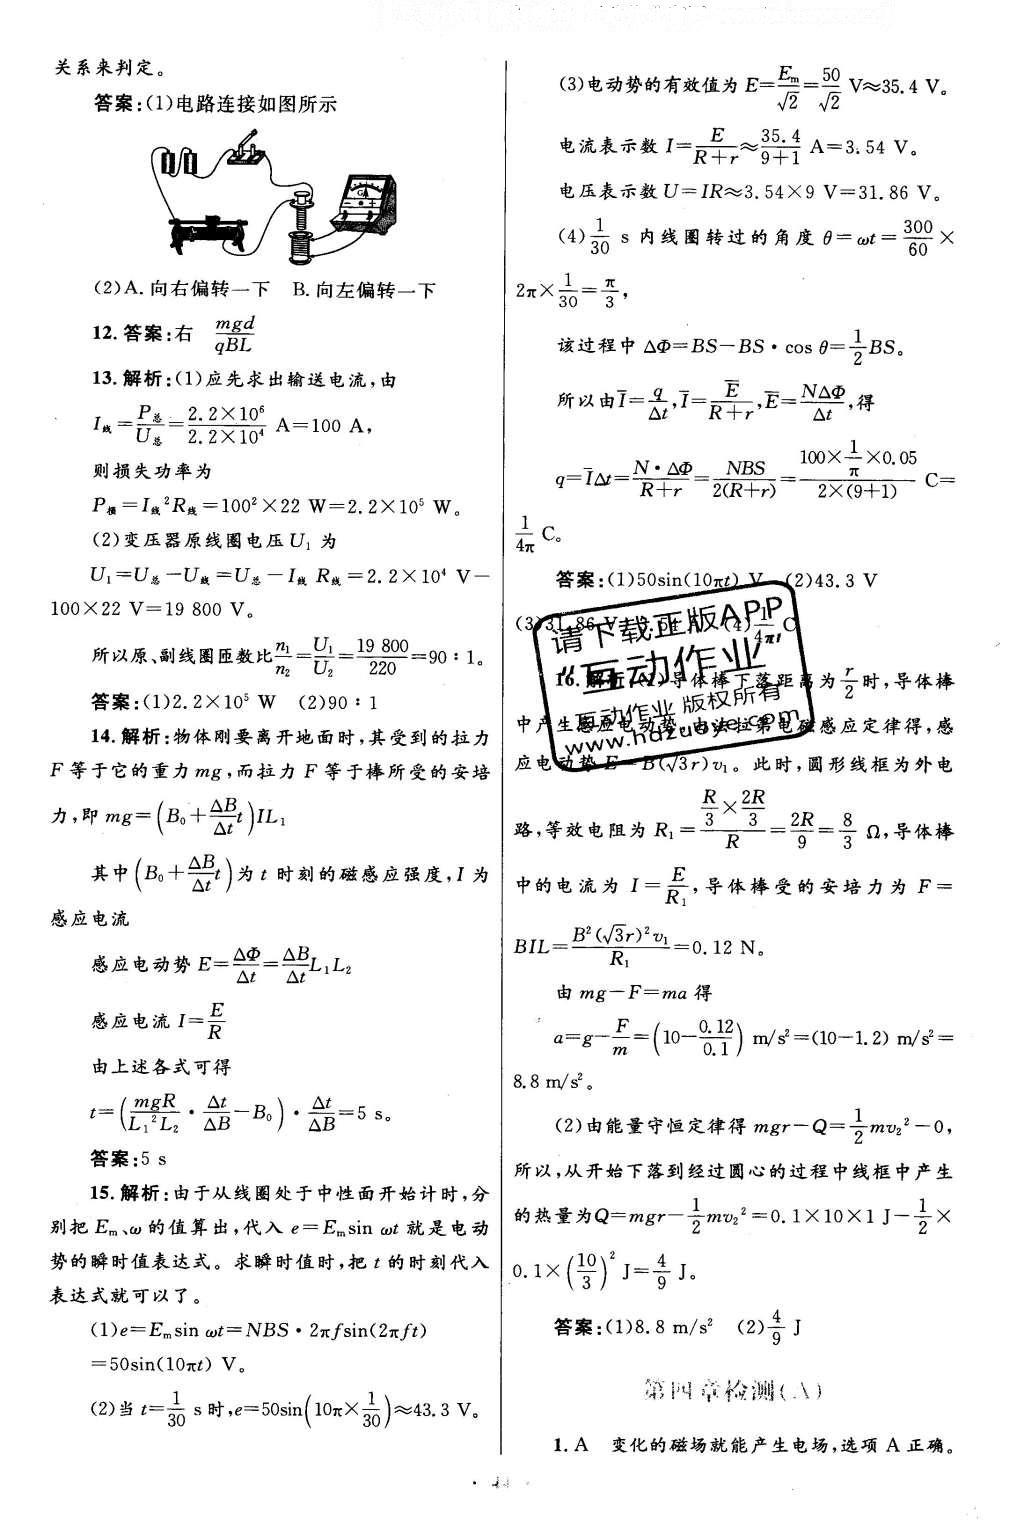 关系来判定。
答案:(1)电路连接如图所示
G
(2)A.向右偏转一下 B.向左偏转一下
12.答案:右 mgd/qBL
13.解析:(1)应先求出输送电流,由
I线=P总/U总=2.2×10⁶/2.2×10⁴ A=100 A,
则损失功率为
P损=I线²R线=100²×22 W=2.2×10⁵ W。
(2)变压器原线圈电压U₁为
U₁=U总-U线=U总-I线R线=2.2×10⁴ V-
100×22 V=19 800 V。
所以原、副线圈匝数比n₁/n₂=U₁/U₂=19 800/220=90∶1。
答案:(1)2.2×10⁵ W (2)90∶1
14.解析:物体刚要离开地面时,其受到的拉力
F等于它的重力mg,而拉力F等于棒所受的安培
力,即mg=(B₀+ΔB/Δt t)IL₁
其中(B₀+ΔB/Δt t)为t时刻的磁感应强度,I为
感应电流
感应电动势E=ΔΦ/Δt=ΔB/Δt L₁L₂
感应电流I=E/R
由上述各式可得
t=(mgR/L₁²L₂·Δt/ΔB-B₀)·Δt/ΔB=5 s。
答案:5 s
15.解析:由于从线圈处于中性面开始计时,分
别把Eₘ、ω的值算出,代入e=Eₘsin ωt就是电动
势的瞬时值表达式。求瞬时值时,把t的时刻代入
表达式就可以了。
(1)e=Eₘsin ωt=NBS·2πfsin(2πft)
=50sin(10πt) V。
(2)当t=1/30 s时,e=50sin(10π×1/30)≈43.3 V。
(3)电动势的有效值为E=Eₘ/√2=50/√2 V≈35.4 V。
电流表示数I=E/(R+r)≈35.4/(9+1) A=3.54 V。
电压表示数U=IR≈3.54×9 V=31.86 V。
(4)1/30 s内线圈转过的角度θ=ωt=300/60×
2π×1/30=π/3,
该过程中ΔΦ=BS-BS·cos θ=1/2 BS。
所以由I̅=q/Δt,I̅=E̅/(R+r),E̅=NΔΦ/Δt,得
q=I̅Δt=N·ΔΦ/(R+r)=NBS/2(R+r)=(100×1/π×0.05)/(2×(9+1)) C=
1/4π C。
答案:(1)50sin(10πt) V (2)43.3 V
(3)31.86 V (4)1/4π C
16.解析:(1)导体棒下落距离为r/2时,导体棒
中产生感应电动势,由法拉第电磁感应定律得,感
应电动势E=B(√3r)v₁。此时,圆形线框为外电
路,等效电阻为R₁=(R/3×2R/3)/R=2R/9=8/3 Ω,导体棒
中的电流为I=E/R₁,导体棒受的安培力为F=
BIL=B²(√3r)²v₁/R₁=0.12 N。
由mg-F=ma得
a=g-F/m=(10-0.12/0.1) m/s²=(10-1.2) m/s²=
8.8 m/s²。
(2)由能量守恒定律得mgr-Q=1/2 mv₂²-0,
所以,从开始下落到经过圆心的过程中线框中产生
的热量为Q=mgr-1/2 mv₂²=0.1×10×1 J-1/2×
0.1×(10/3)² J=4/9 J。
答案:(1)8.8 m/s² (2)4/9 J
第四章检测(A)
1.A 变化的磁场就能产生电场,选项A正确。
请下载正版APP
“互动作业”
互动作业 版权所有
www.hdzuoye.com